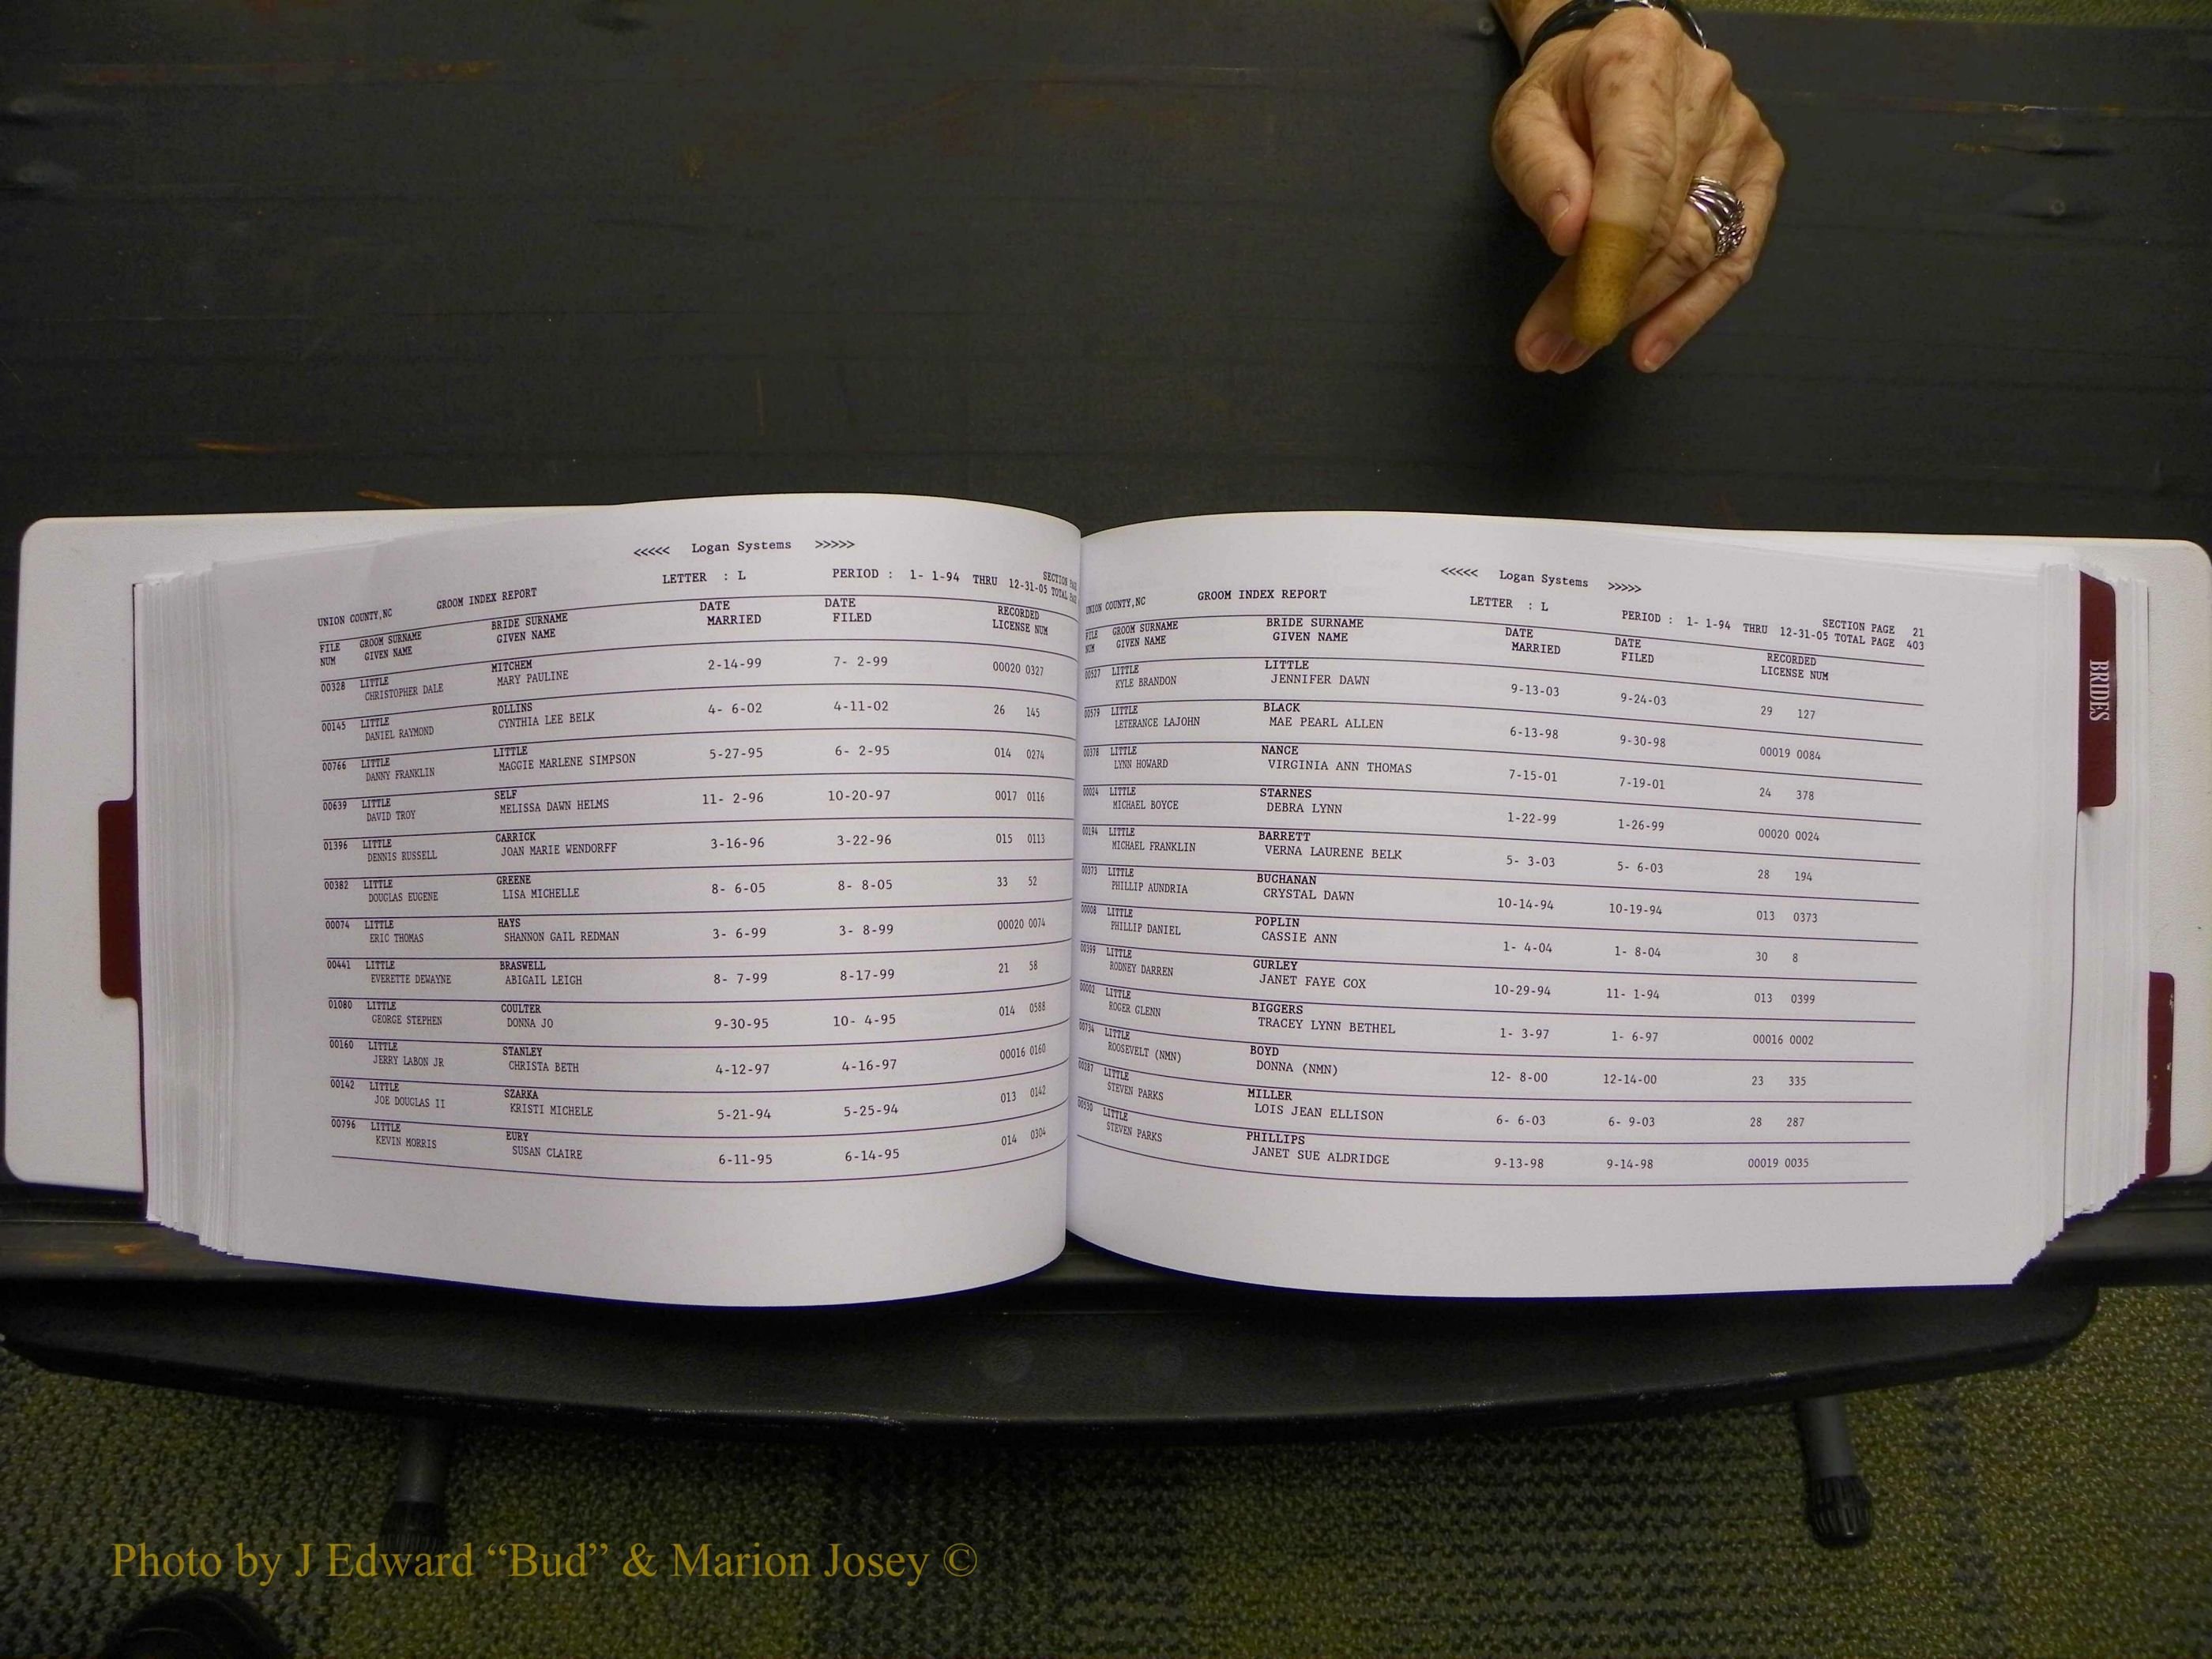 <<<<< Logan Systems >>>>>
LETTER : L PERIOD : 1- 1-94 THRU 12-31-05 TOTAL
SECTION
UNION COUNTY,NC GROOM INDEX REPORT
FILE GROOM SURNAME BRIDE SURNAME DATE DATE RECORDED
NUM GIVEN NAME GIVEN NAME MARRIED FILED LICENSE NUM
00328 LITTLE MITCHEM 2-14-99 7- 2-99 00020 0327
CHRISTOPHER DALE MARY PAULINE
00145 LITTLE ROLLINS 4- 6-02 4-11-02 26 145
DANIEL RAYMOND CYNTHIA LEE BELK
00766 LITTLE LITTLE 5-27-95 6- 2-95 014 0274
DANNY FRANKLIN MAGGIE MARLENE SIMPSON
00639 LITTLE SELF 11- 2-96 10-20-97 0017 0116
DAVID TROY MELISSA DAWN HELMS
01396 LITTLE CARRICK 3-16-96 3-22-96 015 0113
DENNIS RUSSELL JOAN MARIE WENDORFF
00382 LITTLE GREENE 8- 6-05 8- 8-05 33 52
DOUGLAS EUGENE LISA MICHELLE
00074 LITTLE HAYS 3- 6-99 3- 8-99 00020 0074
ERIC THOMAS SHANNON GAIL REDMAN
00441 LITTLE BRASWELL 8- 7-99 8-17-99 21 58
EVERETTE DEWAYNE ABIGAIL LEIGH
01080 LITTLE COULTER 9-30-95 10- 4-95 014 0588
GEORGE STEPHEN DONNA JO
00160 LITTLE STANLEY 4-12-97 4-16-97 00016 0160
JERRY LABON JR CHRISTA BETH
00142 LITTLE SZARKA 5-21-94 5-25-94 013 0142
JOE DOUGLAS II KRISTI MICHELE
00796 LITTLE EURY 6-11-95 6-14-95 014 0304
KEVIN MORRIS SUSAN CLAIRE
<<<<< Logan Systems >>>>>
LETTER : L PERIOD : 1- 1-94 THRU 12-31-05 TOTAL PAGE 403
SECTION PAGE 21
UNION COUNTY,NC GROOM INDEX REPORT
FILE GROOM SURNAME BRIDE SURNAME DATE DATE RECORDED
NUM GIVEN NAME GIVEN NAME MARRIED FILED LICENSE NUM
00527 LITTLE LITTLE 9-13-03 9-24-03 29 127
KYLE BRANDON JENNIFER DAWN
00579 LITTLE BLACK 6-13-98 9-30-98 00019 0084
LETERANCE LAJOHN MAE PEARL ALLEN
00378 LITTLE NANCE 7-15-01 7-19-01 24 378
LYNN HOWARD VIRGINIA ANN THOMAS
00024 LITTLE STARNES 1-22-99 1-26-99 00020 0024
MICHAEL BOYCE DEBRA LYNN
00194 LITTLE BARRETT 5- 3-03 5- 6-03 28 194
MICHAEL FRANKLIN VERNA LAURENE BELK
00373 LITTLE BUCHANAN 10-14-94 10-19-94 013 0373
PHILLIP AUNDRIA CRYSTAL DAWN
00008 LITTLE POPLIN 1- 4-04 1- 8-04 30 8
PHILLIP DANIEL CASSIE ANN
00399 LITTLE GURLEY 10-29-94 11- 1-94 013 0399
RODNEY DARREN JANET FAYE COX
00002 LITTLE BIGGERS 1- 3-97 1- 6-97 00016 0002
ROGER GLENN TRACEY LYNN BETHEL
00734 LITTLE BOYD 12- 8-00 12-14-00 23 335
ROOSEVELT (NMN) DONNA (NMN)
00287 LITTLE MILLER 6- 6-03 6- 9-03 28 287
STEVEN PARKS LOIS JEAN ELLISON
00530 LITTLE PHILLIPS 9-13-98 9-14-98 00019 0035
STEVEN PARKS JANET SUE ALDRIDGE
BRIDES
Photo by J Edward “Bud” & Marion Josey ©